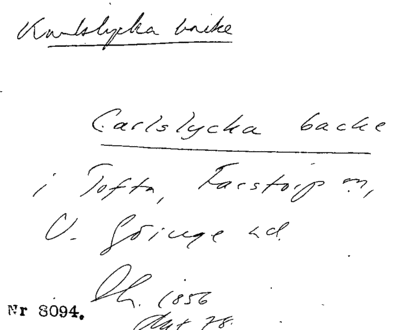 Karlslycka backe
Carlslycka backe
i Tofta, Farstorp sn,
V. Göinge hd.
Lh. 1856
Nr 8094.
dat 78.